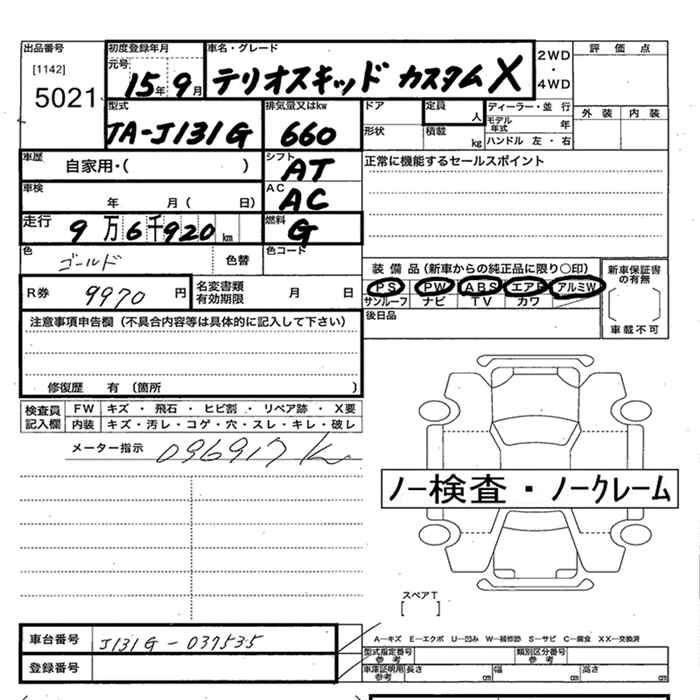 出品番号
[1142]
5021
初度登録年月
元号
15年 9月
車名・グレード
テリオスキッド カスタムX
2WD
・
4WD
評価点
外装 内装
型式
TA-J131G
排気量又はkw
660
ドア
形状
定員
人
積載
kg
ディーラー・並行
モデル年式 年
ハンドル 左・右
車歴
自家用・( )
シフト
AT
正常に機能するセールスポイント
車検
年 月( 日)
AC
AC
走行
9万6千920km
燃料
G
色
ゴールド
色替
色コード
装備品(新車からの純正品に限り〇印)
PS PW ABS エアB アルミW
サンルーフ ナビ TV カワ
新車保証書の有無
車載不可
R券
9970 円
名変書類有効期限
月 日
後日品
注意事項申告欄(不具合内容等は具体的に記入して下さい)
修復歴 有(箇所 )
検査員記入欄
FW キズ・飛石・ヒビ割・リペア跡・X要
内装 キズ・汚レ・コゲ・穴・スレ・キレ・破レ
メーター指示
096917 K
ノー検査・ノークレーム
スペアT
[ ]
車台番号
J131G-037535
登録番号
A―キズ E―エクボ U―凹み W―補修跡 S―サビ C―腐食 XX―交換済
型式指定番号
参考
類別区分番号
参考
車庫証明用
参考
長さ cm
幅 cm
高さ cm